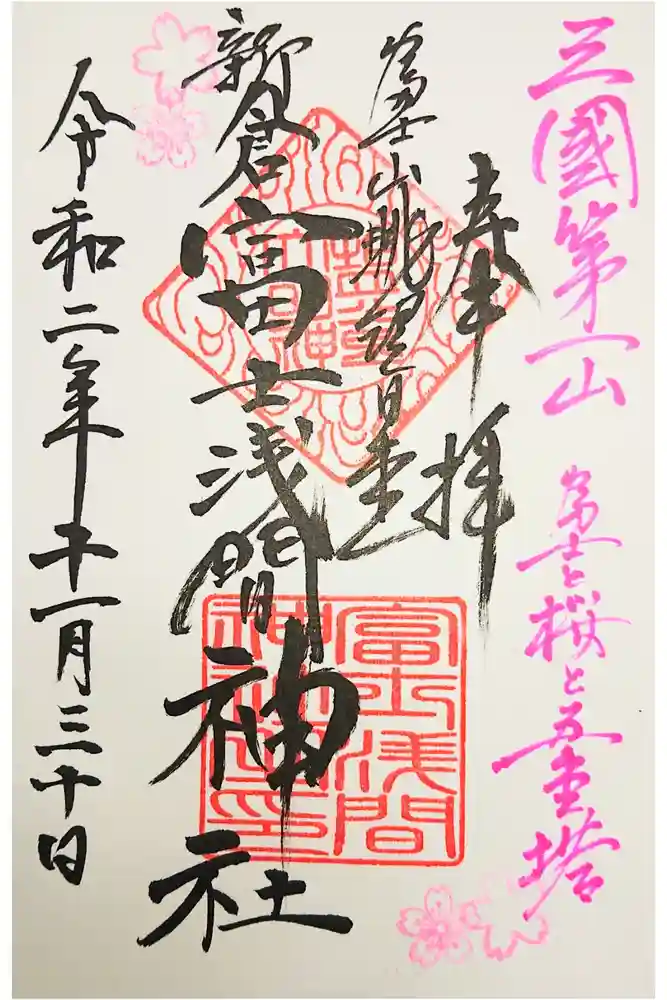 三國第一山 富士と桜と五重塔
奉拝
富士山眺望日本一
新倉富士浅間神社
令和二年十一月三十日
富士浅間